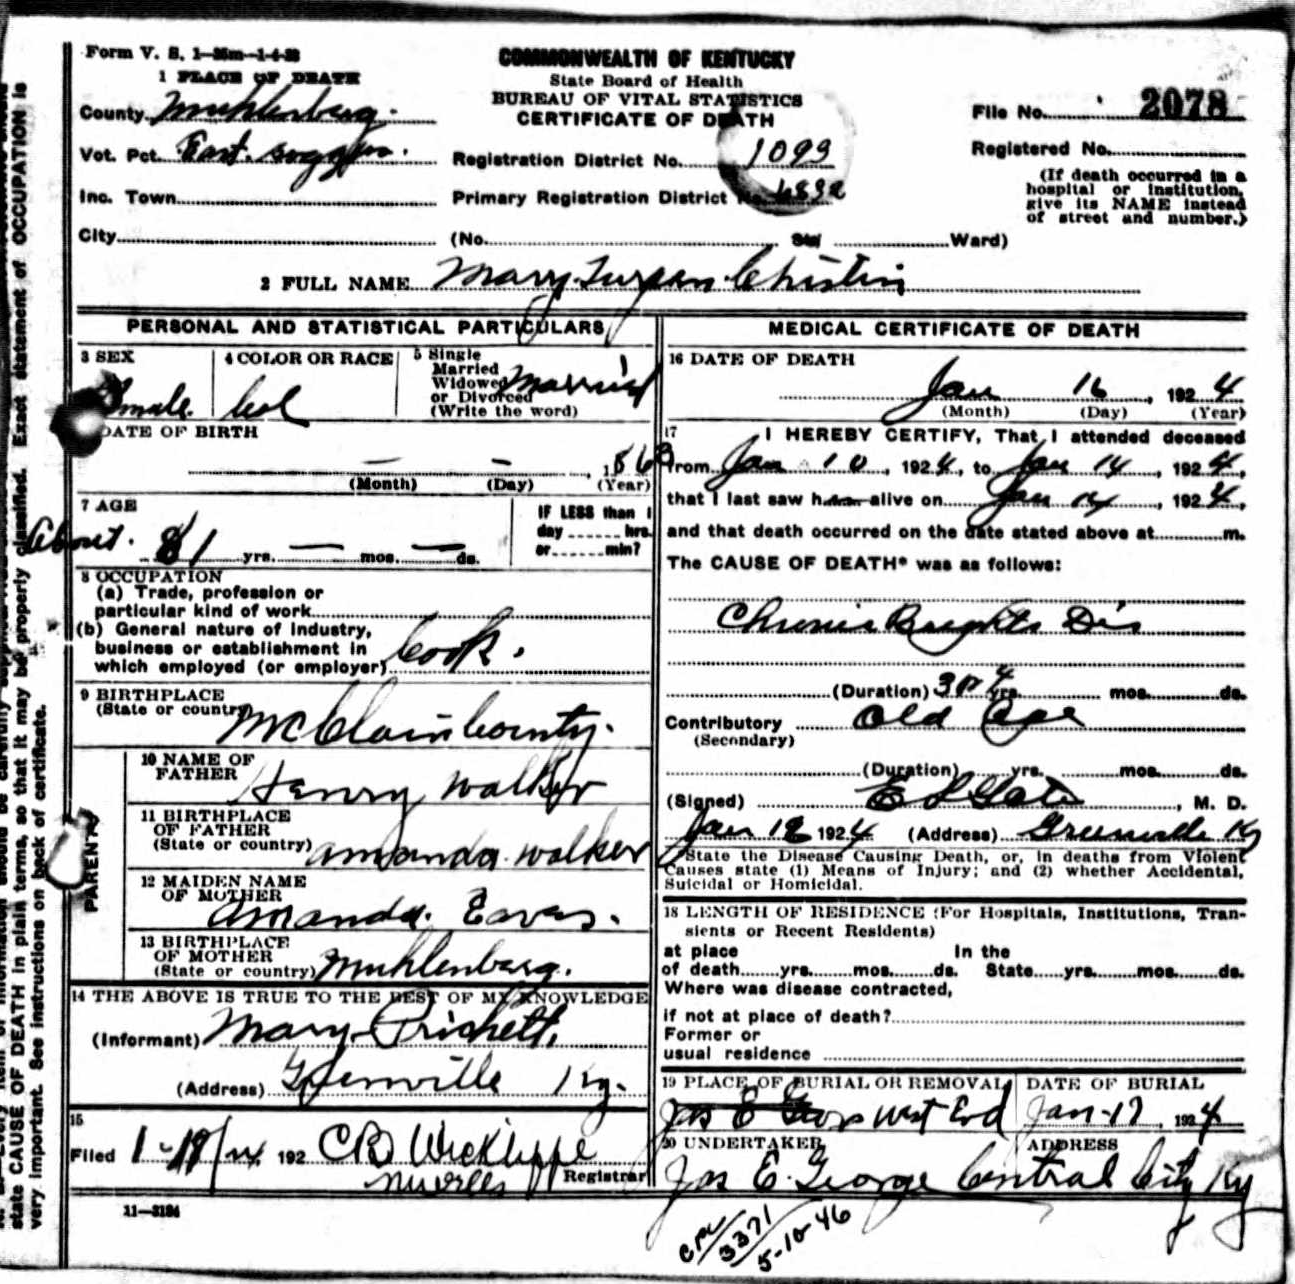 Form V. S. 1—35m—1-4-23
COMMONWEALTH OF KENTUCKY
State Board of Health
BUREAU OF VITAL STATISTICS
CERTIFICATE OF DEATH
File No. 2078
Registered No.
(If death occurred in a
hospital or institution,
give its NAME instead
of street and number.)
1 PLACE OF DEATH
County Muhlenberg.
Vot. Pct. East.
Inc. Town
City
Registration District No. 1093
Primary Registration District No.
(No. St. Ward)
2 FULL NAME Mary
PERSONAL AND STATISTICAL PARTICULARS
3 SEX
4 COLOR OR RACE Col
5 Single
Married
Widowed Married
or Divorced
(Write the word)
DATE OF BIRTH
— — , 186
(Month) (Day) (Year)
7 AGE
About. 81 yrs. — mos. — ds.
IF LESS than 1
day hrs.
or min?
8 OCCUPATION
(a) Trade, profession or
particular kind of work
(b) General nature of industry,
business or establishment in
which employed (or employer) Cook.
9 BIRTHPLACE
(State or country) McClain County.
PARENTS
10 NAME OF
FATHER Henry Walker
11 BIRTHPLACE
OF FATHER
(State or country) Amanda Walker
12 MAIDEN NAME
OF MOTHER Amanda. Eaves.
13 BIRTHPLACE
OF MOTHER
(State or country) Muhlenberg.
14 THE ABOVE IS TRUE TO THE BEST OF MY KNOWLEDGE
(Informant) Mary Prichett,
(Address) Greenville Ky.
15
Filed 192 CB Wickliffe
Registrar
11—3184
MEDICAL CERTIFICATE OF DEATH
16 DATE OF DEATH
Jan 16, 1924
(Month) (Day) (Year)
17 I HEREBY CERTIFY, That I attended deceased
from Jan 10, 1924, to Jan 14, 1924,
that I last saw her alive on Jan 14, 1924,
and that death occurred on the date stated above at m.
The CAUSE OF DEATH* was as follows:
Chronic Brights Dis
(Duration) 3 or 4 yrs. mos. ds.
Contributory Old Age
(Secondary)
(Duration) yrs. mos. ds.
(Signed) , M. D.
Jan 18 1924 (Address) Greenville Ky
State the Disease Causing Death, or, in deaths from Violent
Causes state (1) Means of Injury; and (2) whether Accidental,
Suicidal or Homicidal.
18 LENGTH OF RESIDENCE (For Hospitals, Institutions, Tran-
sients or Recent Residents)
at place In the
of death yrs. mos. ds. State yrs. mos. ds.
Where was disease contracted,
if not at place of death?
Former or
usual residence
19 PLACE OF BURIAL OR REMOVAL West End
DATE OF BURIAL
Jan-17, 1924
20 UNDERTAKER
Jas E. George
ADDRESS
Central City Ky
3371
5-10-46
state CAUSE OF DEATH in plain terms, so that it may be properly classified. Exact statement of OCCUPATION is
very important. See instructions on back of certificate.